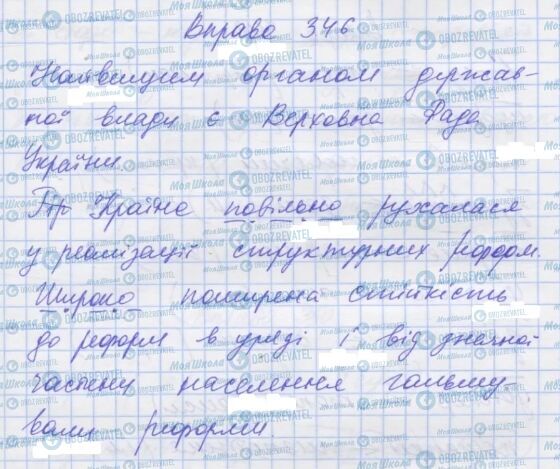 Вправа 346
Найвищим органом держав-
ної влади є Верховна Рада
України.
Україна повільно рухалася
у реалізації структурних реформ.
Широко поширена стійкість
до реформ в уряді і від значної
частини населення гальму-
вали реформи.